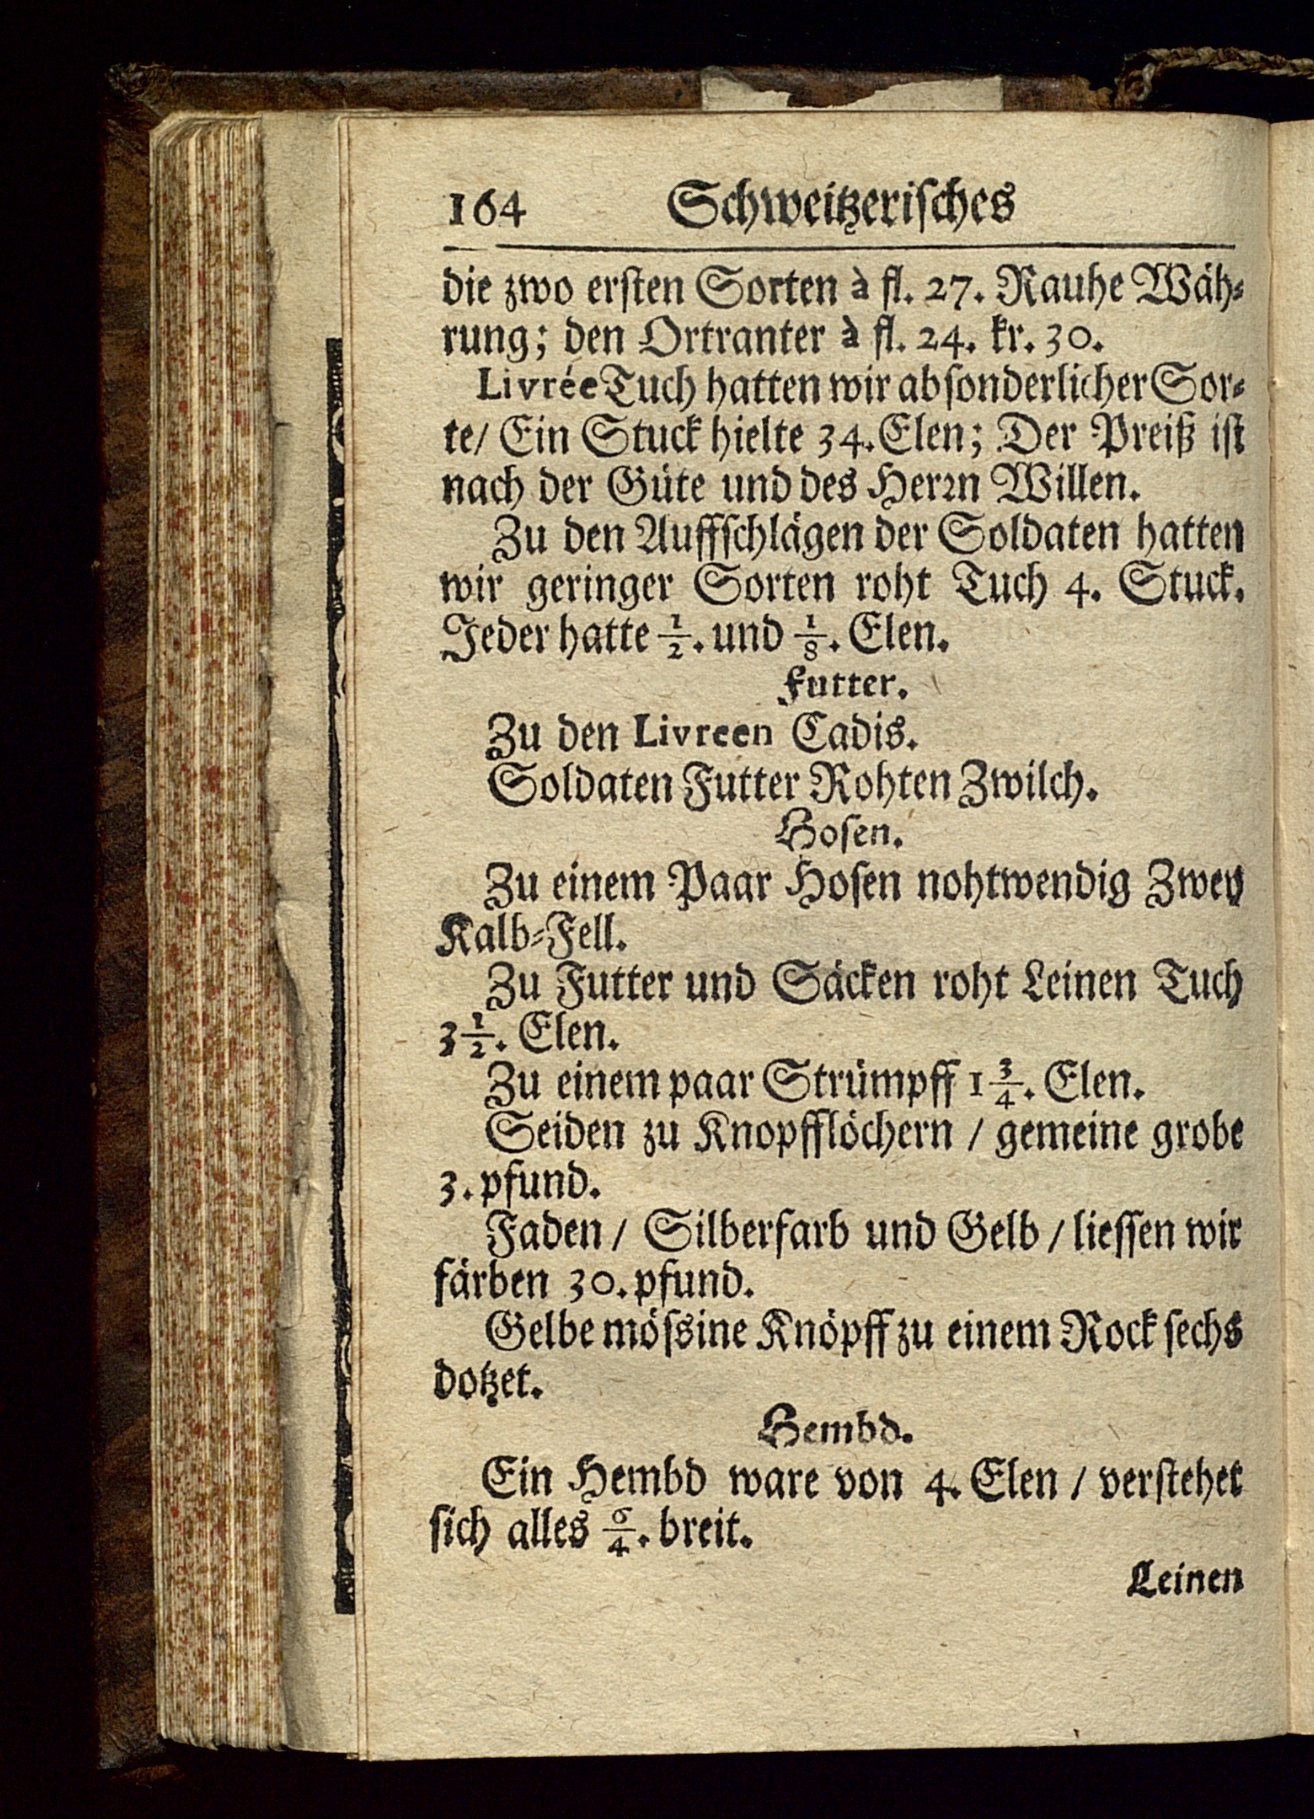 164 Schweitzerisches
die zwo ersten Sorten à fl. 27. Rauhe Wäh-
rung; den Ortranter à fl. 24. kr. 30.
Livrée Tuch hatten wir absonderlicher Sor-
te/ Ein Stuck hielte 34. Elen; Der Preiß ist
nach der Güte und des Herrn Willen.
Zu den Auffschlägen der Soldaten hatten
wir geringer Sorten roht Tuch 4. Stuck.
Jeder hatte 1/2. und 1/8. Elen.
Futter.
Zu den Livreen Cadis.
Soldaten Futter Rohten Zwilch.
Hosen.
Zu einem Paar Hosen nohtwendig Zwey
Kalb-Fell.
Zu Futter und Säcken roht Leinen Tuch
3 1/2. Elen.
Zu einem paar Strümpff 1 3/4. Elen.
Seiden zu Knopfflöchern / gemeine grobe
3. pfund.
Faden / Silberfarb und Gelb / liessen wir
färben 30. pfund.
Gelbe mössine Knöpff zu einem Rock sechs
dotzet.
Hembd.
Ein Hembd ware von 4. Elen / verstehet
sich alles 6/4. breit.
Leinen